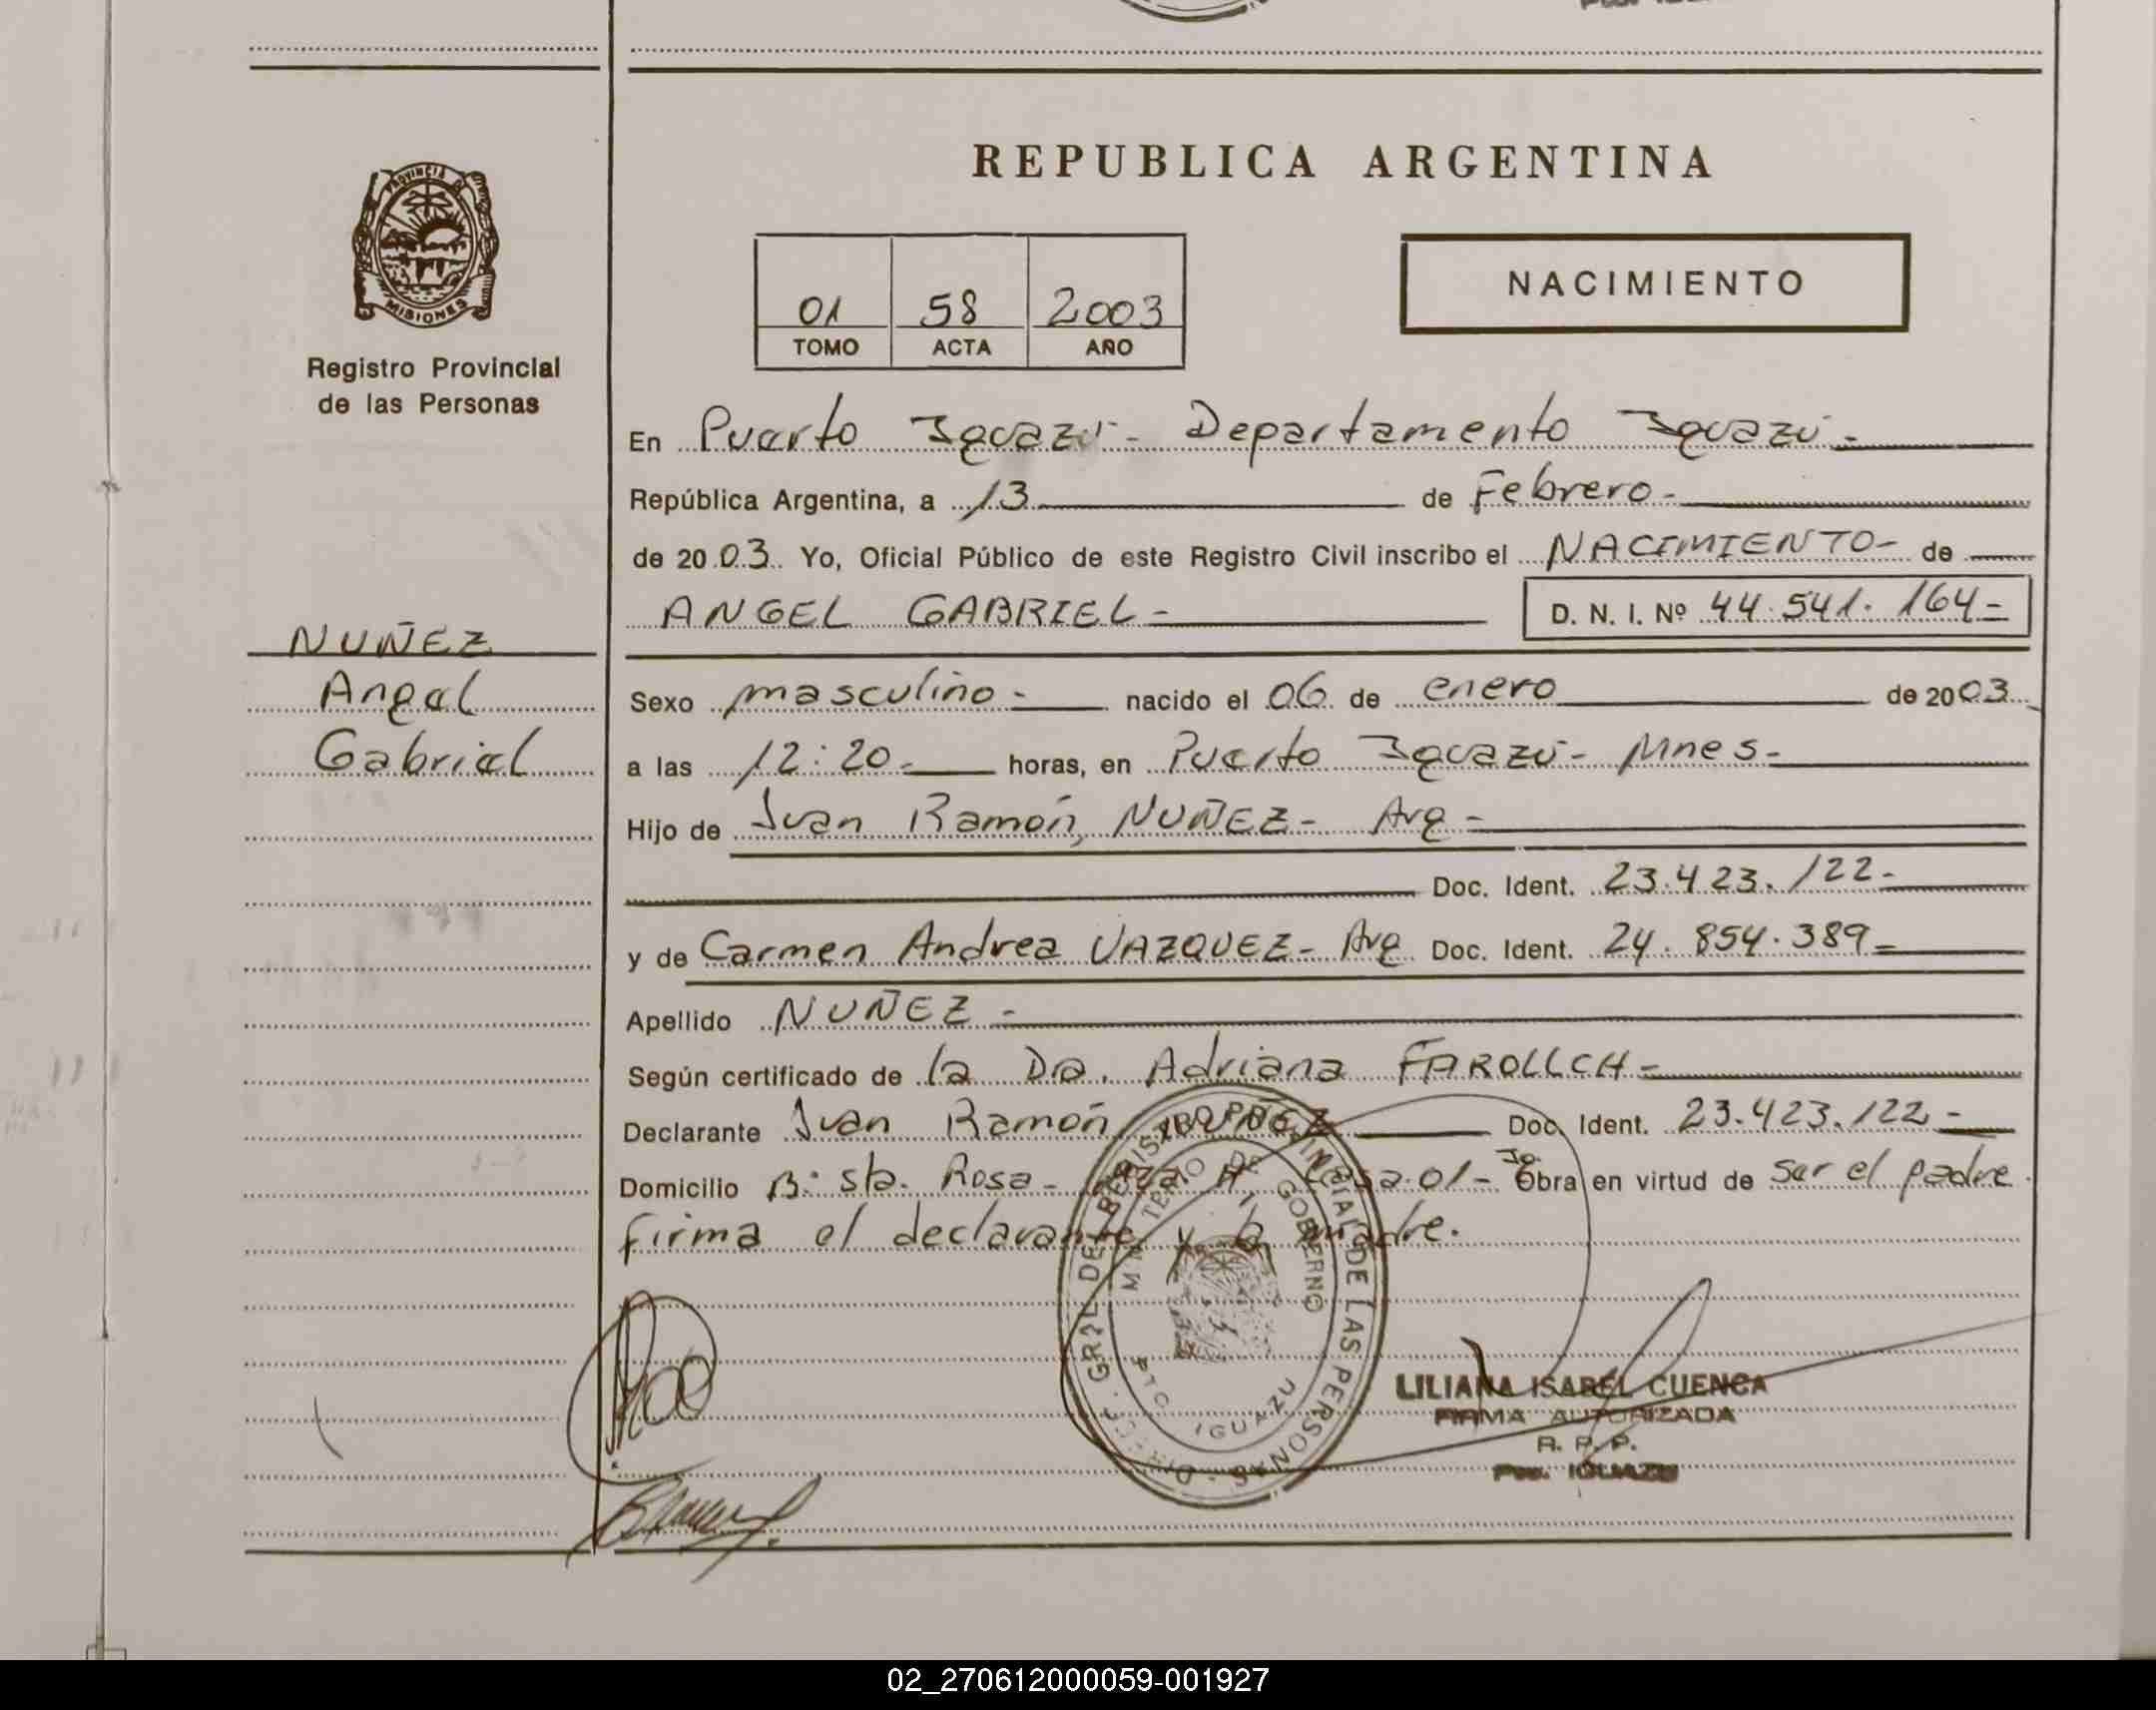 PROVINCIA DE
MISIONES
Registro Provincial
de las Personas
REPUBLICA ARGENTINA
01 58 2003
TOMO ACTA AÑO
NACIMIENTO
En Puerto Iguazú - Departamento Iguazú -
República Argentina, a 13 de Febrero -
de 2003. Yo, Oficial Público de este Registro Civil inscribo el NACIMIENTO - de
ANGEL GABRIEL - D. N. I. Nº 44.541.164 -
NUÑEZ
Angel
Gabriel
Sexo masculino - nacido el 06 de enero de 2003
a las 12:20 - horas, en Puerto Iguazú - Mnes -
Hijo de Juan Ramón, NUÑEZ - Arg -
Doc. Ident. 23.423.122 -
y de Carmen Andrea VAZQUEZ - Arg Doc. Ident. 24.854.389 -
Apellido NUÑEZ -
Según certificado de la Dra. Adriana FAROLLCH -
Declarante Juan Ramón NUÑEZ Doc. Ident. 23.423.122 -
Domicilio B: Sta. Rosa - Casa 01 - Obra en virtud de ser el padre
firma el declarante y la madre.
MINISTERIO DE GOBIERNO
PTO IGUAZU
LILIANA ISABEL CUENCA
FIRMA AUTORIZADA
R. P. P.
IGUAZU
02_270612000059-001927